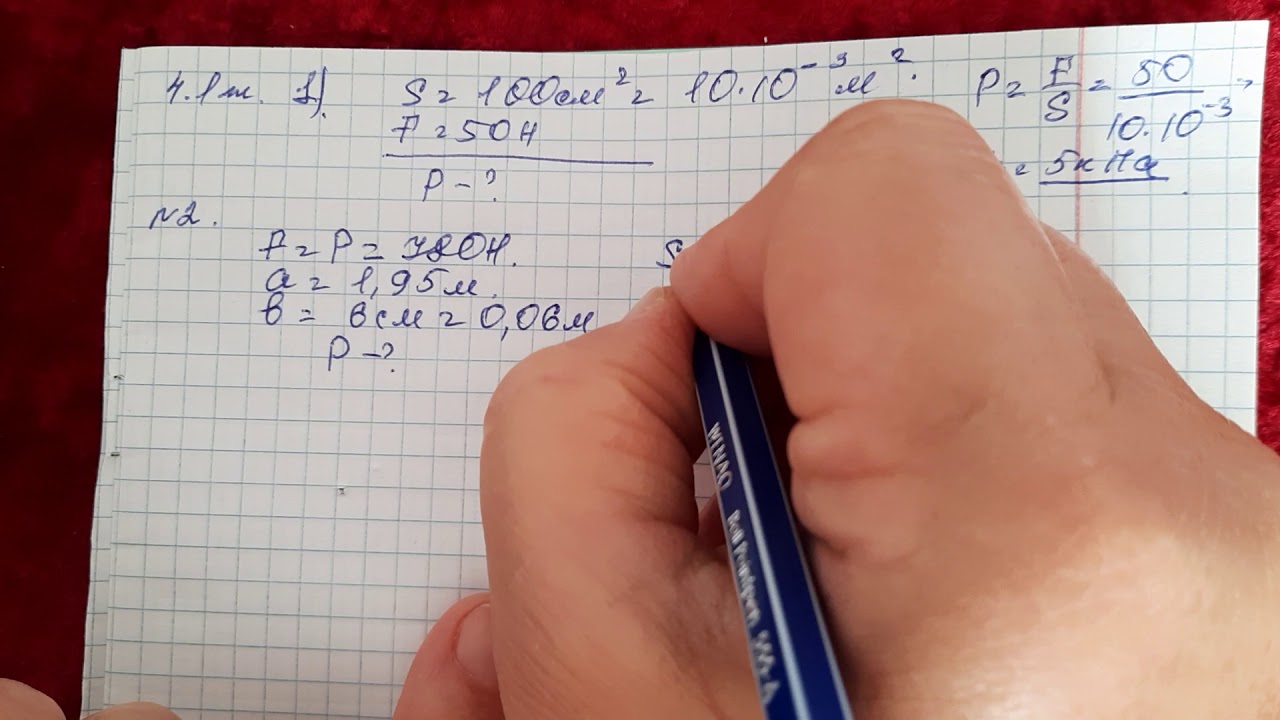 4.1 т. 1). S = 100 см² = 10·10⁻³ м². P = F/S = 50/10·10⁻³ =
F = 50 Н = 5 кПа
P - ?
№2.
F = P = 780 Н.
a = 1,95 м.
в = 8 см = 0,08 м
P - ?
S
WINAO